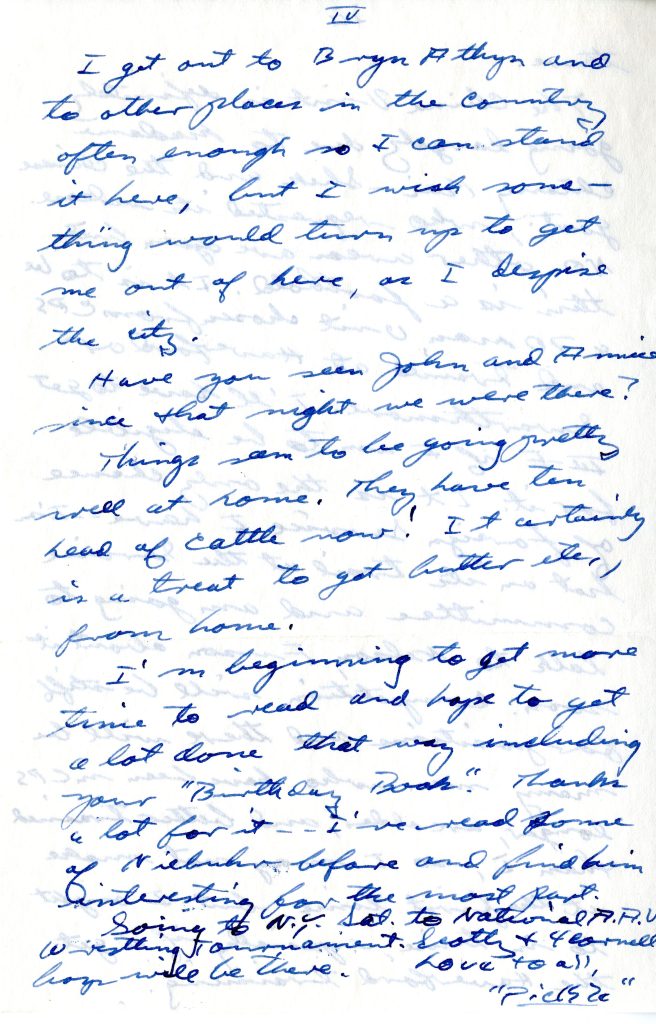 IV
I get out to Bryn Athyn and
to other places in the country
often enough so I can stand
it here, but I wish some-
thing would turn up to get
me out of here, as I despise
the city.
Have you seen John and
since that night we were there?
Things seem to be going pretty
well at home. They have ten
head of cattle now! It certainly
is a treat to get butter etc.,
from home.
I'm beginning to get more
time to read and hope to get
a lot done that way including
your "Birthday Book". Thanks
a lot for it -- I've read some
of Niebuhr before and find him
interesting for the most part.
Going to N.Y. Sat. to National A.A.U
Wrestling Tournament. Scotty + 4 Cornell
boys will be there. Love to all,